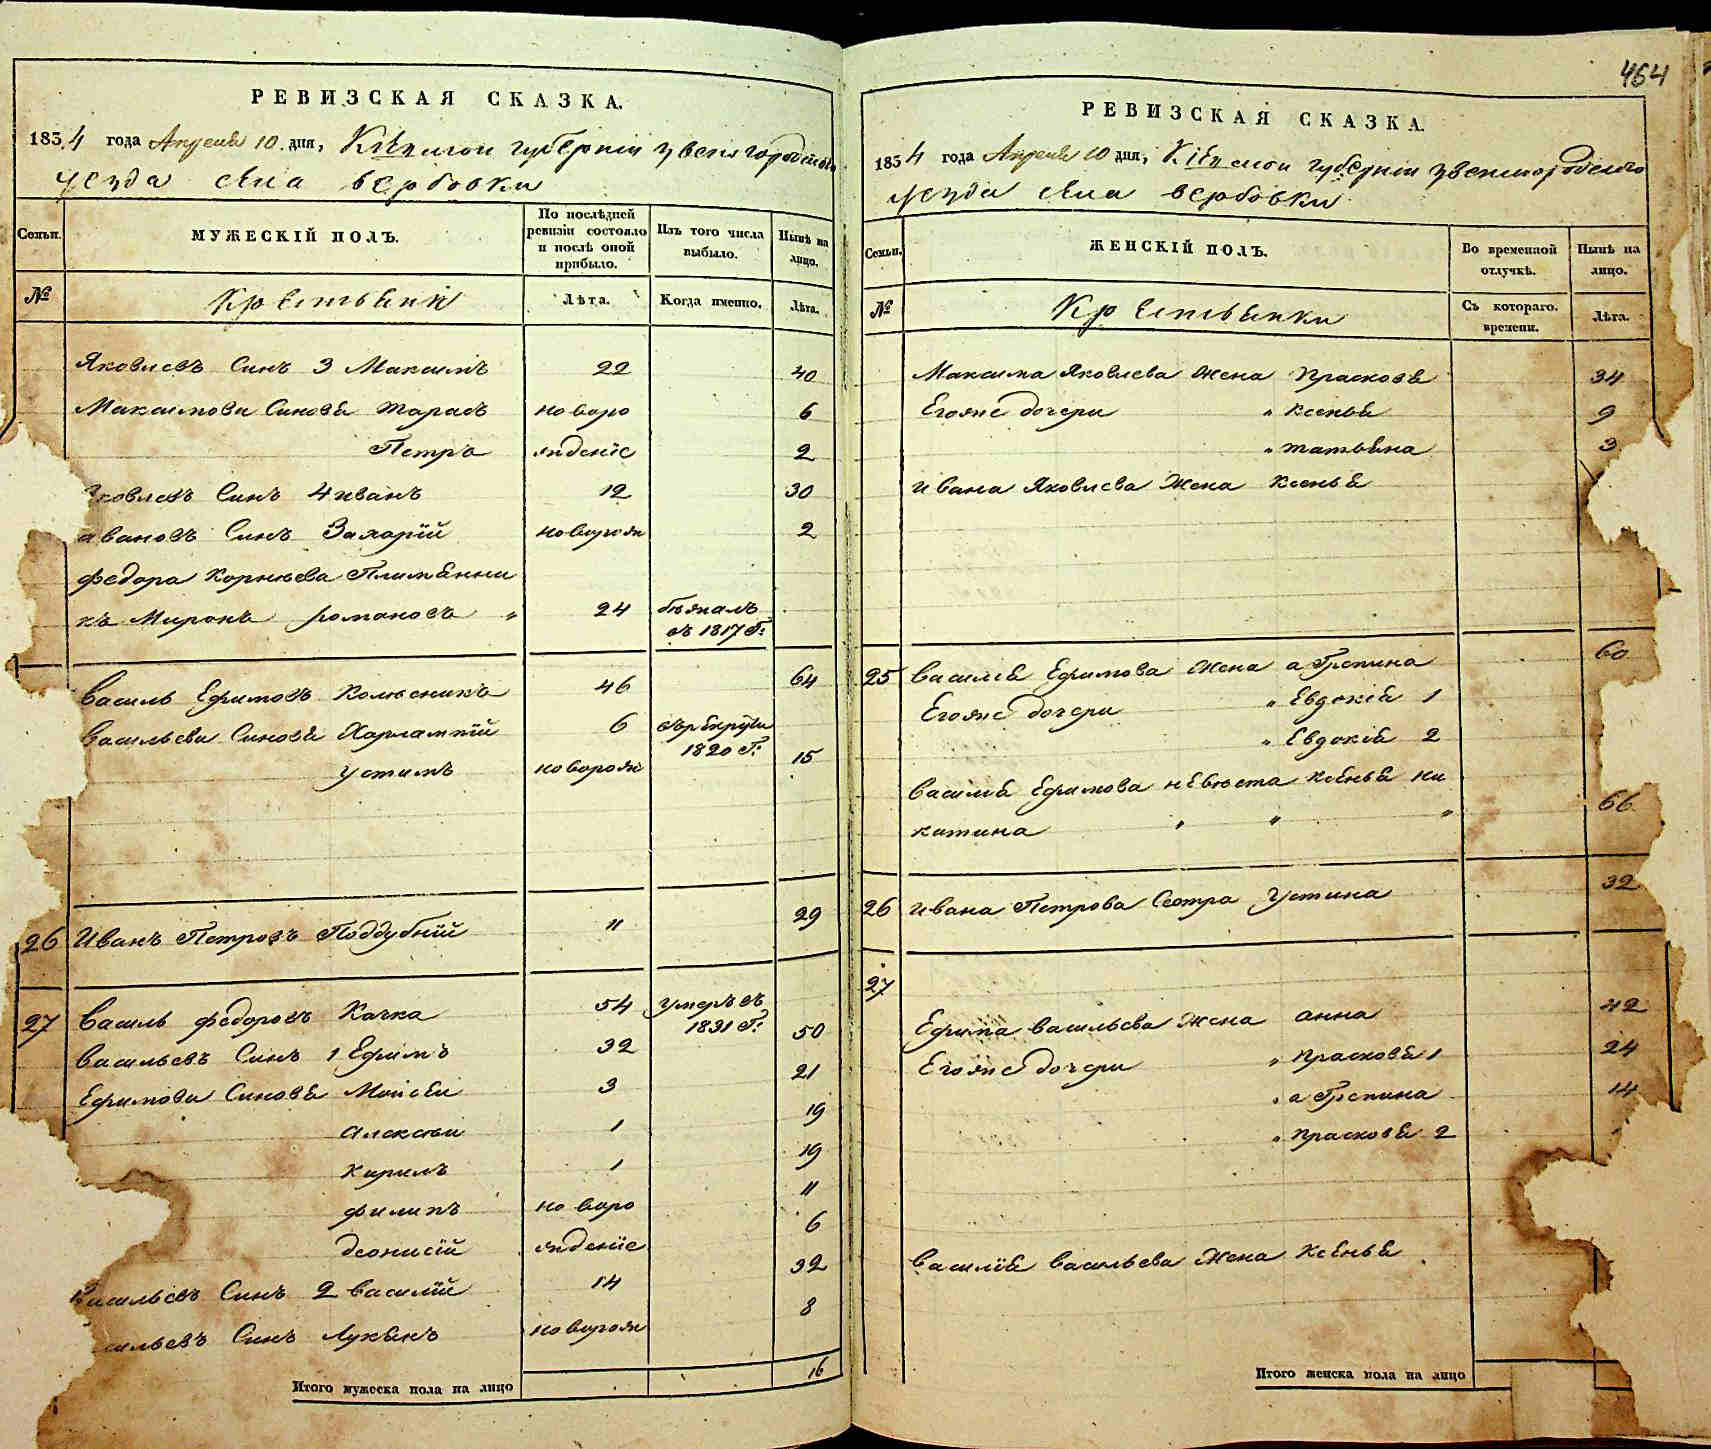 РЕВИЗСКАЯ СКАЗКА.
1834 года Апреля 10 дня, Кіевской губерніи Звенигородскаго
уезда села вербовки
Семьи. МУЖЕСКІЙ ПОЛЪ. По послѣдней ревизіи состояло и послѣ оной прибыло. Изъ того числа выбыло. Нынѣ на лицо.
№ Крестьяне Лѣта. Когда именно. Лѣта.
Яковлевъ Синъ 3 Максимъ 22 40
Максимови Синовя Тарасъ новоро 6
Петръ жденіе 2
Яковлевъ Синъ 4 иванъ 12 30
ивановъ Синъ Захарій новорож 2
Федора Корнѣева Племянни
къ Миронъ романовъ " 24 бѣжалъ
въ 1817 Г:
Василь Ефимовъ Колѣсникъ 46 64
Васильеви Синовя Харлампій 6 въ рекрути
1820 Г:
устимъ новорож 15
26 Иванъ Петровъ Поддубній 11 29
27 Василь Федоровъ Качка 54 умеръ въ
1831 Г:
Васильевъ Синъ 1 Ефимъ 32 50
Ефимови Синовя Моисеи 3 21
Алексѣи 1 19
Кирилъ 1 19
филипъ новоро 11
деонисій жденіе 6
Васильевъ Синъ 2 василій 14 32
сильевъ Синъ Лукянъ новорож 8
Итого мужеска пола на лицо 16
464
РЕВИЗСКАЯ СКАЗКА.
1834 года Апреля 10 дня, Кіевской губерніи Звенигородскаго
уезда села вербовки
Семьи. ЖЕНСКІЙ ПОЛЪ. Во временной отлучкѣ. Нынѣ на лицо.
№ Крестьянки Съ котораго времени. Лѣта.
Максима Яковлева жена Прасковя 34
Егоже дочери " Ксенья 9
" татьяна 3
ивана Яковлева жена Ксенья
25 Василя Ефимова жена агрепина 60
Егоже дочери " Евдокія 1
" Евдокія 2
Василя Ефимова невѣста Ксенья ни
китина " " " 66
26 ивана Петрова Сестра Устина 32
27
Ефима васильева жена анна 42
Егоже дочери " Прасковя 1 24
" агрепина 14
" Прасковя 2
Василія васильева жена Ксенья
Итого женска пола на лицо